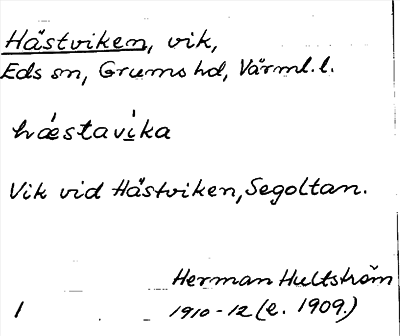 Hästviken, vik,
Eds sn, Grums hd, Värml. l.
hǽstavi̍ka
Vik vid Hästviken, Segoltan.
Herman Hultström
1 1910-12 (e. 1909.)